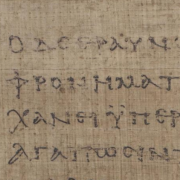 ΟΔΕΕΡΑΥΝ
ΦΡΟΝΗΜΑΤ
ΧΑΝΕΙΫΠΕΡ
ΑΓΑΠΩϹΙΝΤ